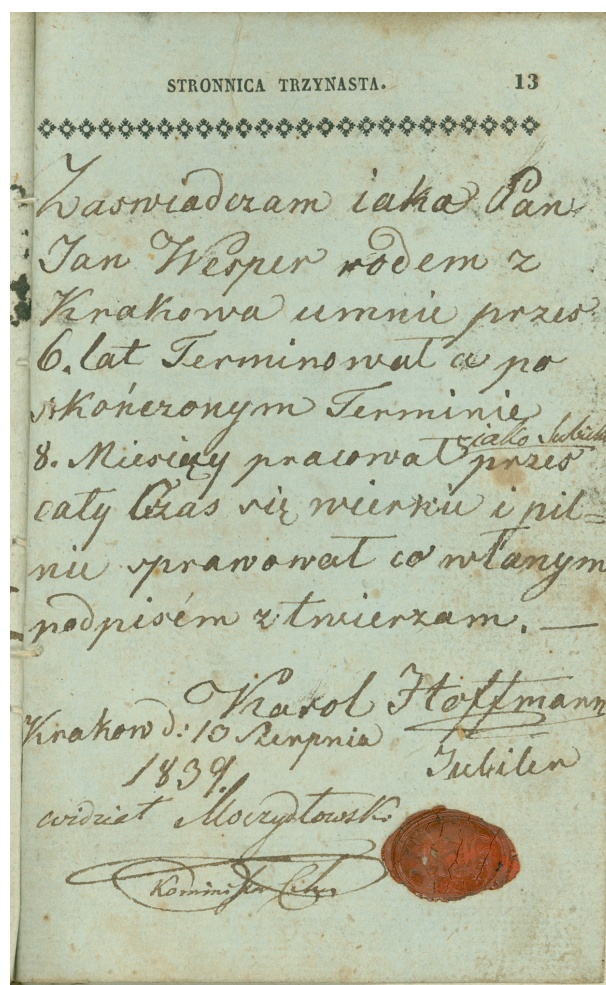 STRONNICA TRZYNASTA. 13
Zaswiadczam iako Pan
Jan Wesper rodem z
Krakowa umnie przes
6. lat Terminował a po
skończonym Terminie
8. Miesięcy pracował iako Jubiler przes
cały Czas się wiernie i pil=
nie sprawował co własnym
podpisém ztwierzam. —
Karol Hoffmann
Krakow d: 10 Sierpnia
Jubiler
1839.
widział Moczydłowski